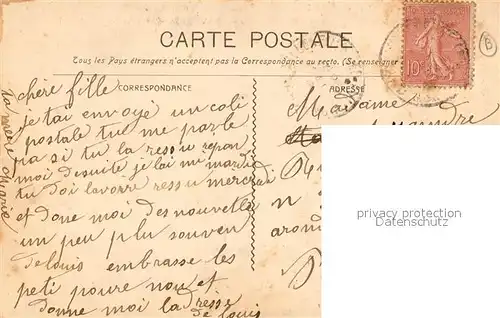 CARTE POSTALE
Tous les Pays étrangers n'acceptent pas la Correspondance au recto. (Se renseigner
CORRESPONDANCE
ADRESSE
10
B
chère fille
je tai envoyé un coli
postale tu me parle
pa si tu la ressu repon
moi desuite je lai mi mardi
tu doi lavoire ressu mercredi
et done moi des nouvelle
un peu plu souven
de louis embrasse les
peti poure nou et
donne moi ladresse
de louis
Ta mere Marie
Madame
privacy protection
Datenschutz